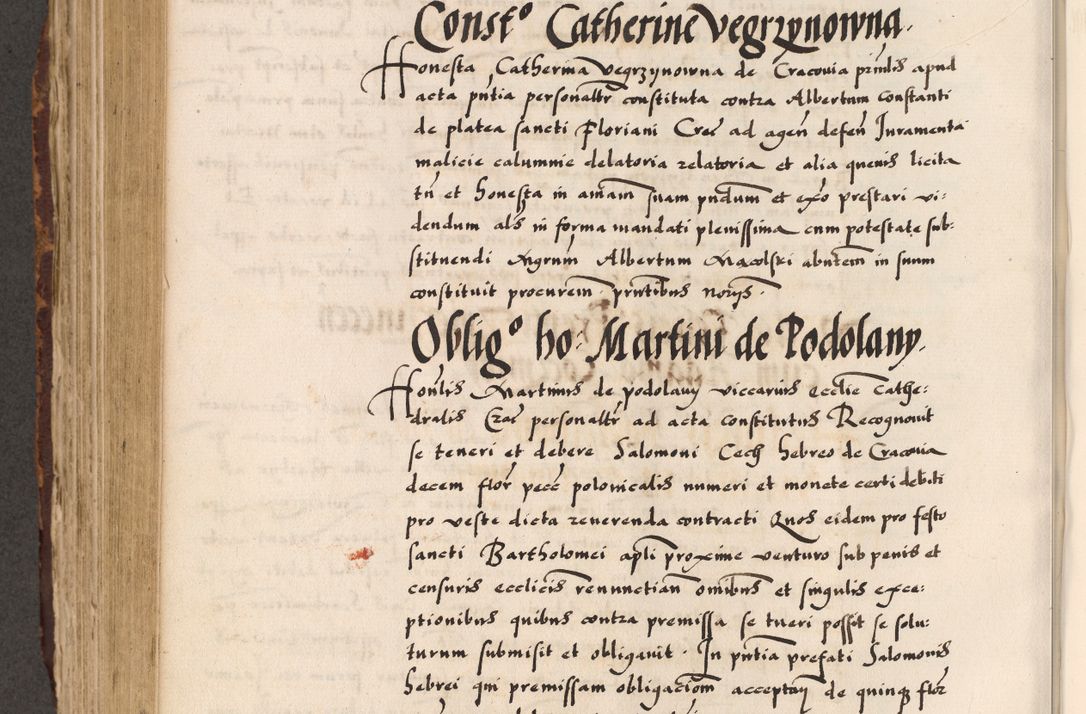 Constº Catherine Vegrzynowna.
Honesta Catherina Vegrzynowna de Cracovia primis apud
acta pntia personaltr constituta contra Albertum Constanti
de platea sancti Floriani Crac ad agen defen Iuramenta
malicie calumnie delatoria relatoria et alia quevis licita
tn et honesta in aniam suam pndum et exo prestari vi:
dendum als in forma mandati plenissima cum potestate sub:
stituendi Mgrum Albertum Macolski absntem in suum
constituit procurem pntibus noriis.
Obligº ho: Martini de Podolany.
Honlis Martinus de podolany viccarius ecclie Cathe:
dralis Crac personaltr ad acta constitutus Recognovit
se teneri et debere Salomoni Cech hebreo de Cracovia
decem flor pecc polonicalis numeri et monete certi debiti
pro veste dicta reverenda contracti Quos eidem pro festo
sancti Bartholomei apli proxime venturo sub penis et
censuris ecclicis renunctian omibus et singulis exce:
ptionibus quibus contra premissa se tueri possit se solu:
turum submisit et obligavit. In pntia prefati Salomonis
hebrei qui premissam obligaciom acceptan de quinqz flor